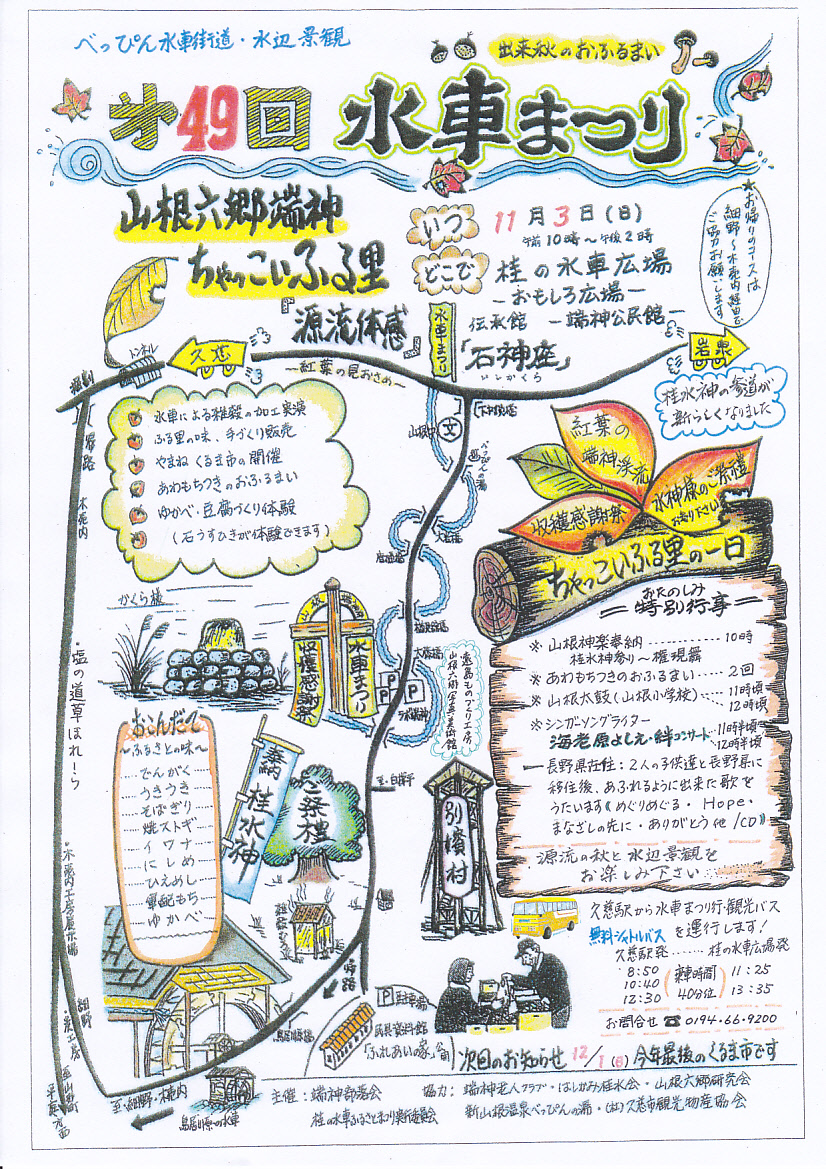 べっぴん水車街道・水辺景観
出来秋のおふるまい
第49回 水車まつり
山根六郷端神
ちゃっこいふる里
源流体感
いつ 11月3日(日)
午前10時~午後2時
どこで 桂の水車広場
-おもしろ広場-
伝承館 -端神公民館-
「石神座」
いしがくら
★お帰りのコースは
細野~木売内経由で
ご協力お願いします
水車まつり
久慈
岩泉
トンネル
~紅葉の見おさめ~
桂水神の参道が
新らしくなりました
水車による雑穀の加工実演
ふる里の味、手づくり販売
やまね くるま市の開催
あわもちつきのおふるまい
ゆかべ・豆腐づくり体験
(石うすひきが体験できます)
帰路
木売内
文
べっぴんの湯
紅葉の
端神渓流
収穫感謝祭
水神様のご祭礼
ちゃっこいふる里の一日
おたのしみ
=特別行事=
※ 山根神楽奉納 ………… 10時
桂水神参り~権現舞
※ あわもちつきのおふるまい …… 2回
※ 山根太鼓(山根小学校) …… 11時頃
12時頃
※ シンガーソングライター
海老原よしえ・絆コンサート 11時半頃
12時半頃
長野県在住:2人の子供達と長野県に
移住後、あふれるように出来た歌を
うたいます《めぐりめぐる・Hope・
まなざしの先に・ありがとう他/CD》
源流の秋と水辺景観を
お楽しみ下さい
かくら様
収穫感謝祭
水車まつり
P P
・塩の道草ほれーら
おこんだて
~ふるさとの味~
でんがく
うきうき
そばぎり
焼ストギ
イワナ
にしめ
ひえめし
軍配もち
ゆかべ
奉納 桂水神
ご祭礼
別嬪村
帰路
P 駐車場
民具資料館
「ふれあいの家」
至・細野・木売内
久慈駅から水車まつり行・観光バス
無料シャトルバス を運行します!
久慈駅発 …… 桂の水車広場発
8:50
10:40
12:30
(乗車時間
40分位)
11:25
13:35
お問合せ ☎ 0194-66-9200
次回のお知らせ 12/1(日) 今年最後のくるま市です
主催:端神部落会
桂の水車ふるさとまつり実行委員会
協力:端神老人クラブ・はしかみ桂水会・山根六郷研究会
新山根温泉べっぴんの湯・(社)久慈市観光物産協会